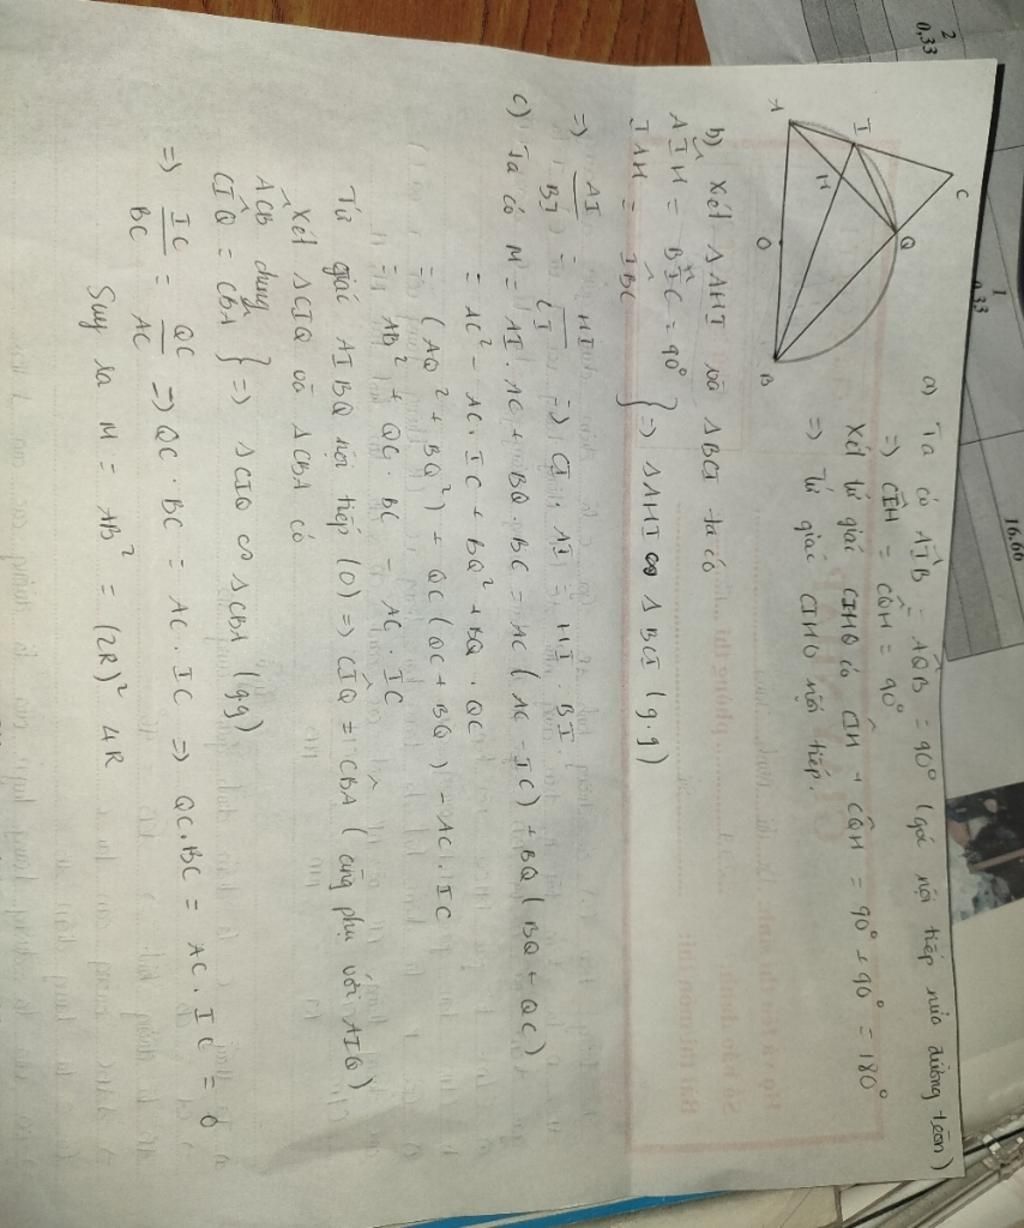 a) Ta có AÎB = AQ̂B = 90° (góc nội tiếp nửa đường tròn)
=> CÎH = CQ̂H = 90°
Xét tứ giác CIHQ có CÎH + CQ̂H = 90° + 90° = 180°
=> Tứ giác CIHQ nội tiếp.
A
I
C
H
Q
O
B
b) Xét ΔAHI và ΔBCI ta có
AÎH = BÎC = 90°
IAH = IBC } => ΔAHI ∽ ΔBCI (g.g)
=> AI/BI = HI/CI => CI. AI = HI. BI.
c) Ta có M = AI. AC + BQ. BC = AC (AC - IC) + BQ (BQ + QC)
= AC² - AC. IC + BQ² + BQ. QC
= (AQ² + BQ²) + QC (QC + BQ) - AC. IC
= AB² + QC. BC - AC. IC
Tứ giác AIBQ nội tiếp (O) => CÎQ = CBA (cùng phụ với AIQ)
Xét ΔCIQ và ΔCBA có
ACB chung
CÎQ = CBA } => ΔCIQ ∽ ΔCBA (g.g)
=> IC/BC = QC/AC => QC. BC = AC. IC => QC. BC = AC. IC = 0
Suy ra M = AB² = (2R)² 4R
2
0,33
1
0,33
16.66